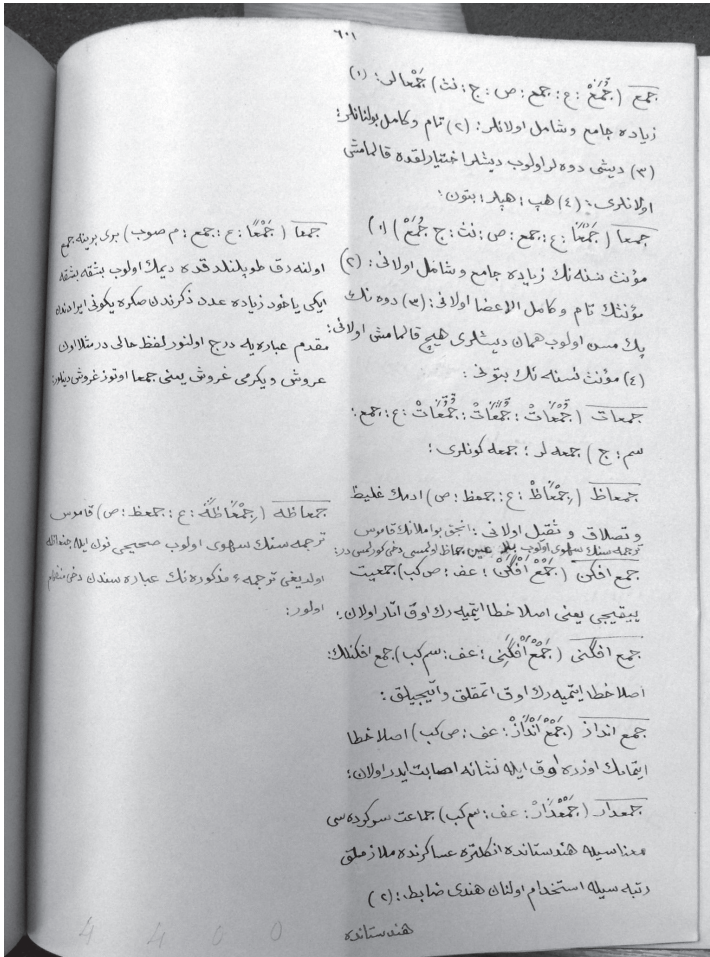 ٦٠١
جمع ( جُمَعْ : ع : جمع : ص : ج : نث ) جَمْعَالر : (١)
زیاده جامع و شامل اولانلر : (٢) تام و کامل بولنانلر :
(٣) دیشی دوه لر اولوب دیشلر اختیارلقده قالمامش
اولانلری : (٤) هپ : هپلر : بتون :
جمعا ( جَمْعَا : ع : جمع : ص : نث : ج جُمَعْ ) (١)
مؤنث نسنه نك زیاده جامع و شامل اولانی : (٢)
مؤنثك تام و کامل الاعضا اولانی : (٣) دوه نك
پك مسن اولوب همان دیشلری هیچ قالمامش اولانی :
(٤) مؤنث نسنه نك بتونی :
جمعات ( جُمْعَاتْ : جُمَعَاتْ : جُمُعَاتْ : ع : جمع :
سم : ج ) جمعه لر : جمعه کونلری :
جمعاظ ( جِمْعَاظْ : ع : جمعظ : ص ) ادمك غلیظ
و تصلاق و ثقیل اولانی : انجق بو املانك قاموس
ترجمه سنك سهوی اولوب بلا عین جماظ اولمسی دخی کورلمس در :
جمع افکن ( جَمْعْ اَفْکَنْ : عف : ص کب ) جمعیت
ییقیجی یعنی اصلا خطا ایتمیه رك اوق اتار اولان :
جمع افکنی ( جَمْعْ اَفْکَنِی : عف : سم کب ) جمع افکنلك :
اصلا خطا ایتمیه رك اوق اتمقلق و اتیجیلق :
جمع انداز ( جَمْعْ اَنْدَازْ : عف : ص کب ) اصلا خطا
ایتمامك اوزره اوق ایله نشانه اصابت ایدر اولان :
جمعدار ( جَمْعْدَارْ : عف : سم کب ) جماعت سرکرده سی
معناسیله هندستانده انکلتره عساکرنده ملازملق
رتبه سیله استخدام اولنان هندی ضابط : (٢)
هندستانده
جمعا ( جَمْعًا : ع : جمع : م صوب ) بری برینه جمع
اولنه رق طوپلندقده دیمك اولوب بشقه بشقه
ایکی یاخود زیاده عدد ذکرندن صکره یکونی ایرادندن
مقدم عباره یه درج اولنور لفظ حالی در مثلا اون
غروش و یکرمی غروش یعنی جمعا اوتوز غروش دینلور :
جمعاظه ( جِمْعَاظَةْ : ع : جمعظ : ص ) قاموس
ترجمه سنك سهوی اولوب صحیحی نون ایله جنعاظه
اولدیغی ترجمهء مذکوره نك عباره سندن دخی منفهم
اولور :
4 4 0 0